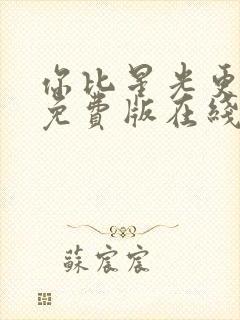 你比星光更
免費版在綫
蘇宸宸